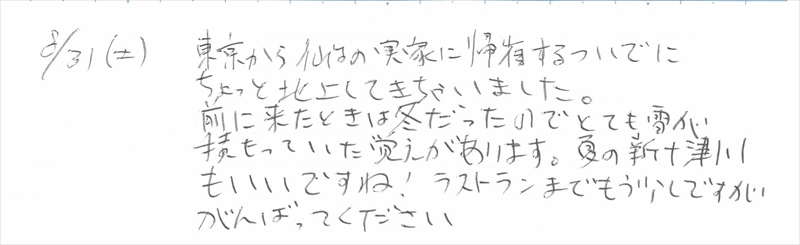 8/31(土) 東京から仙台の実家に帰省するついでに
ちょっと北上してきちゃいました。
前に来たときは冬だったのでとても雪が
積もっていた覚えがあります。夏の新十津川
もいいですね！ラストランまでもう少しですが
がんばってください